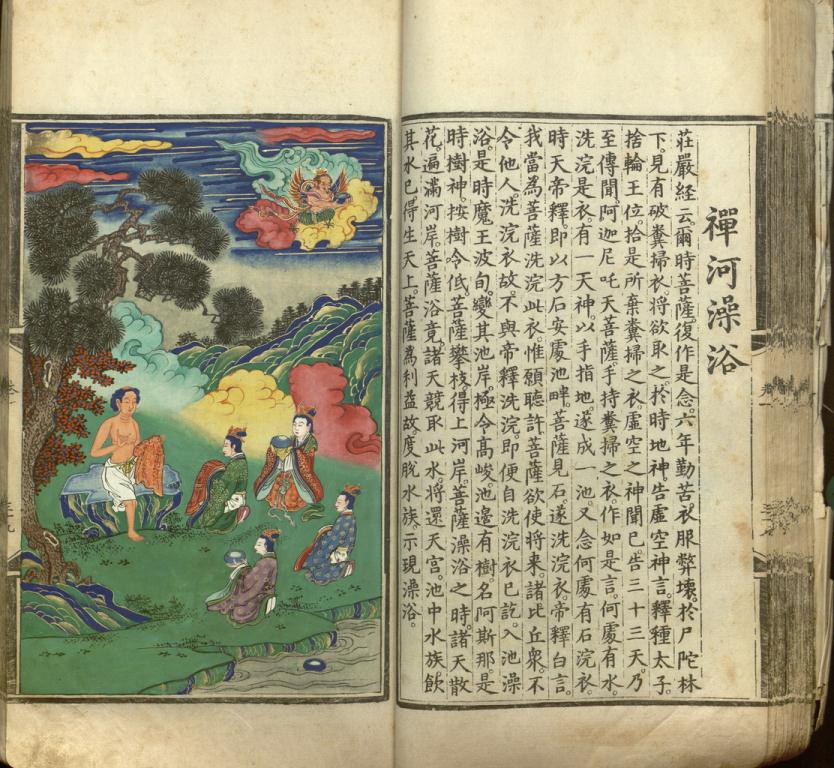 禪河澡浴
莊嚴経云。爾時菩薩。復作是念。六年勤苦。衣服弊壞。於尸陀林
下。見有破糞掃衣。将欲取之。於時地神。告虛空神言。釋種太子。
捨輪王位。拾是所棄糞掃之衣。虛空之神聞已。告三十三天。乃
至傳聞。阿迦尼吒天。菩薩手持糞掃之衣。作如是言。何處有水。
洗浣是衣。有一天神。以手指地。遂成一池。又念何處有石浣衣。
時天帝釋。即以方石安處池畔。菩薩見石。遂洗浣衣。帝釋白言。
我當為菩薩洗浣此衣。惟願聽許。菩薩欲使将来。諸比丘衆。不
令他人。洗浣衣故。不與帝釋洗浣。即便自洗浣衣已訖。入池澡
浴。是時魔王波旬。變其池岸。極令高峻。池邊有樹。名阿斯那。是
時樹神。按樹令低。菩薩攀枝。得上河岸。菩薩澡浴之時。諸天散
花。遍滿河岸。菩薩浴竟。諸天競取此水。将還天宮。池中水族。飲
其水已。得生天上。菩薩爲利益故。度脫水族。示現澡浴。